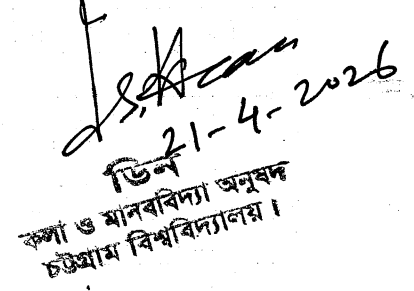 21-4-2026
ডিন
কলা ও মানববিদ্যা অনুষদ
চট্টগ্রাম বিশ্ববিদ্যালয়।